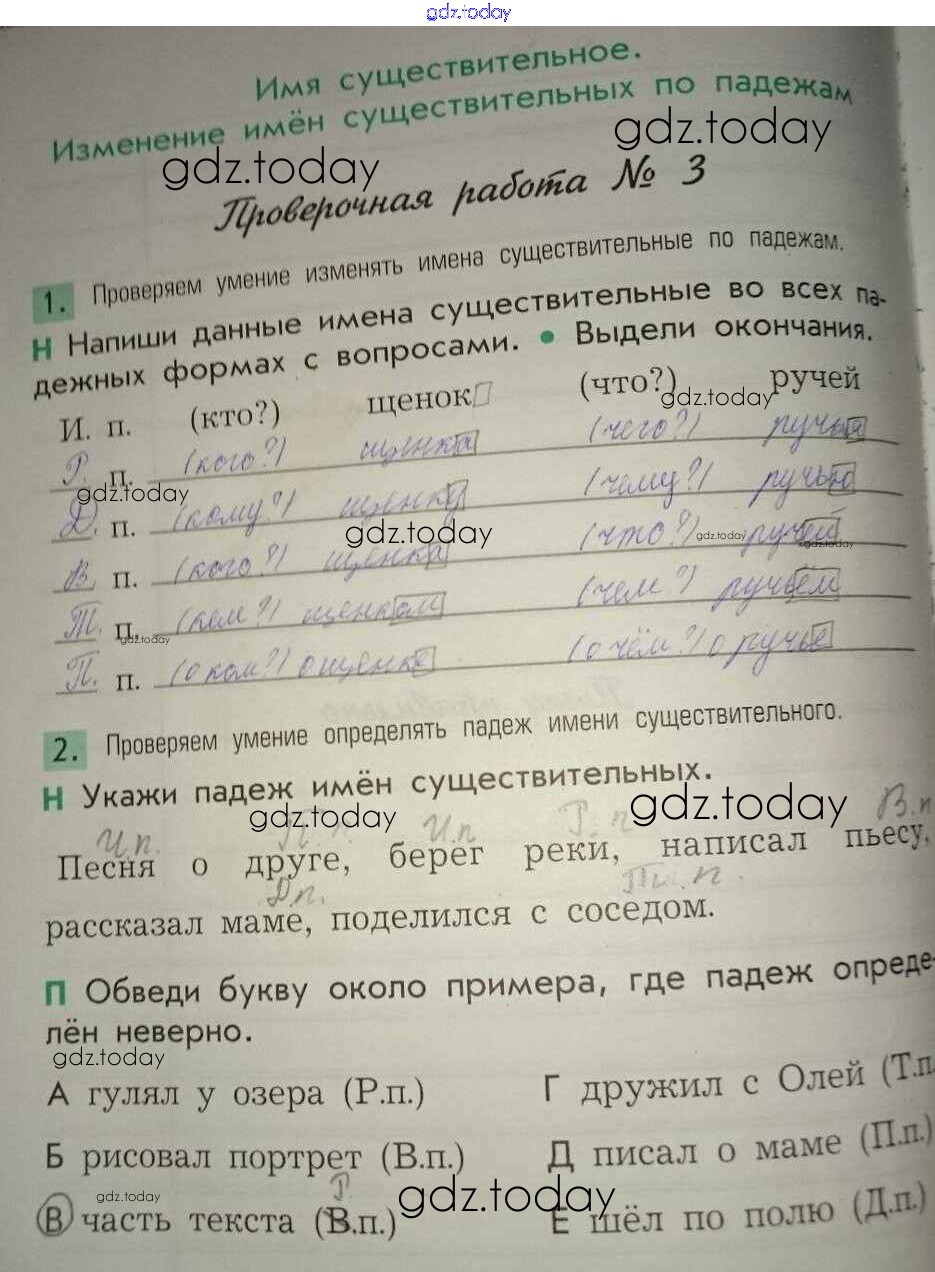 gdz.today
Имя существительное.
Изменение имён существительных по падежам
gdz.today
gdz.today
Проверочная работа № 3
1. Проверяем умение изменять имена существительные по падежам.
Н Напиши данные имена существительные во всех па-
дежных формах с вопросами. • Выдели окончания.
И. п. (кто?) щенок (что?) ручей
gdz.today
Р. п. (кого?) щенка (чего?) ручья
gdz.today
Д. п. (кому?) щенку (чему?) ручью
gdz.today gdz.today
В. п. (кого?) щенка (что?) ручей
gdz.today
Т. п. (кем?) щенком (чем?) ручьем
gdz.today
П. п. (о ком?) о щенке (о чём?) о ручье
2. Проверяем умение определять падеж имени существительного.
Н Укажи падеж имён существительных.
gdz.today gdz.today
И.п. П. п. И.п Р. п В.п
Песня о друге, берег реки, написал пьесу,
Д п. п.
рассказал маме, поделился с соседом.
П Обведи букву около примера, где падеж опреде-
лён неверно.
gdz.today
А гулял у озера (Р.п.) Г дружил с Олей (Т.п.
Б рисовал портрет (В.п.) Д писал о маме (П.п.)
gdz.today Р. gdz.today
В часть текста (В.п.) Е шёл по полю (Д.п.)